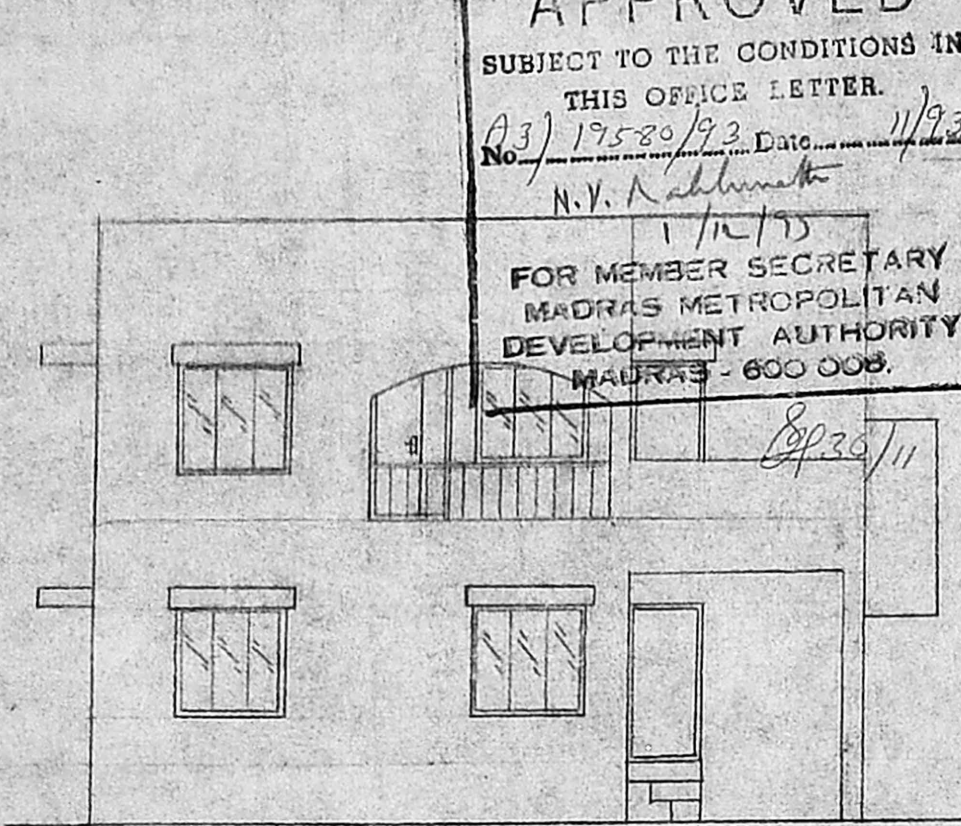 APPROVED
SUBJECT TO THE CONDITIONS IN
THIS OFFICE LETTER.
No A3/19580/93 Date 11/93
N.V.
1/12/93
FOR MEMBER SECRETARY
MADRAS METROPOLITAN
DEVELOPMENT AUTHORITY
MADRAS - 600 008.
30/11